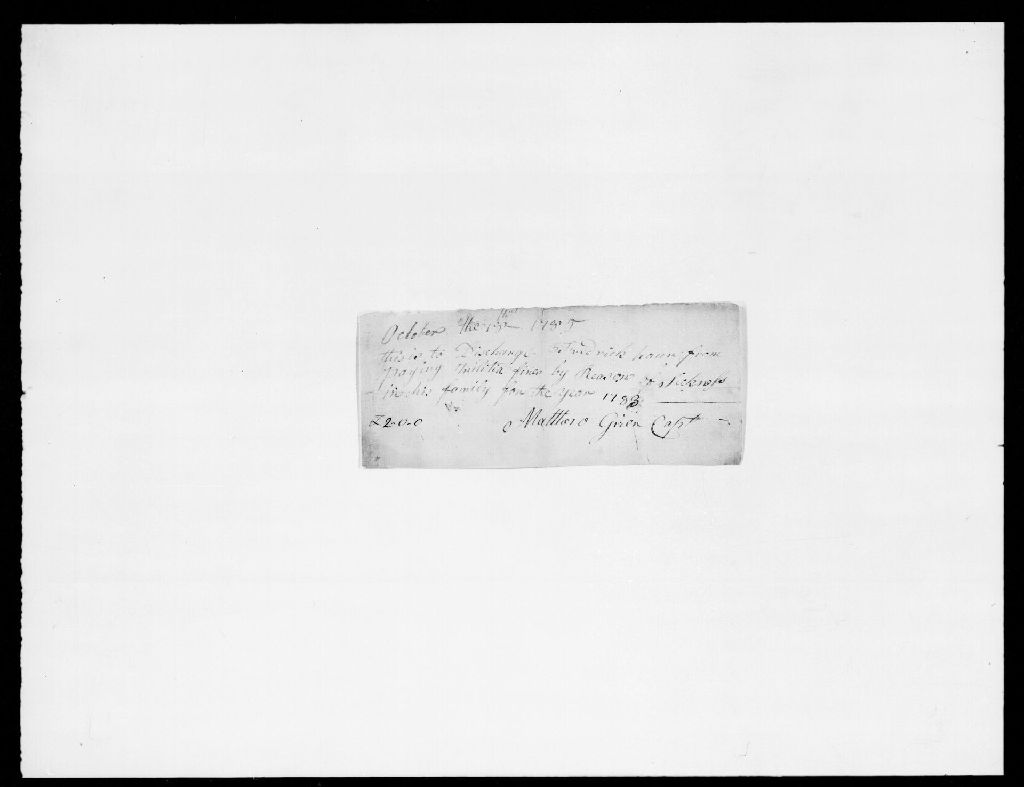 October the 1785
this is to Discharge Fredrick haun from
paying militia fines by Reason of Sickness
in his family for the year 1783
£2-0-0 Matthew Capt